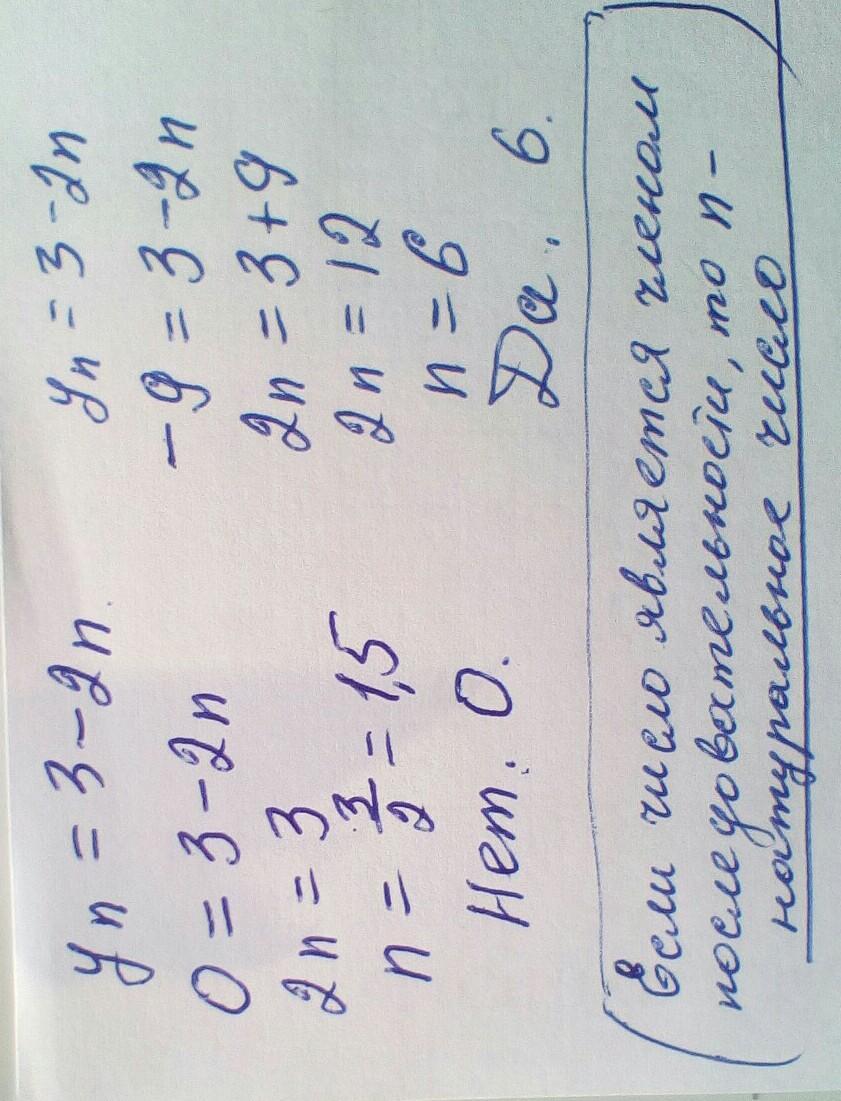 yn = 3 - 2n.
0 = 3 - 2n
2n = 3
n = 3/2 = 1,5
Нет. 0.
yn = 3 - 2n
-9 = 3 - 2n
2n = 3 + 9
2n = 12
n = 6
Да. 6.
(Если число является членом
последовательности, то n -
натуральное число)